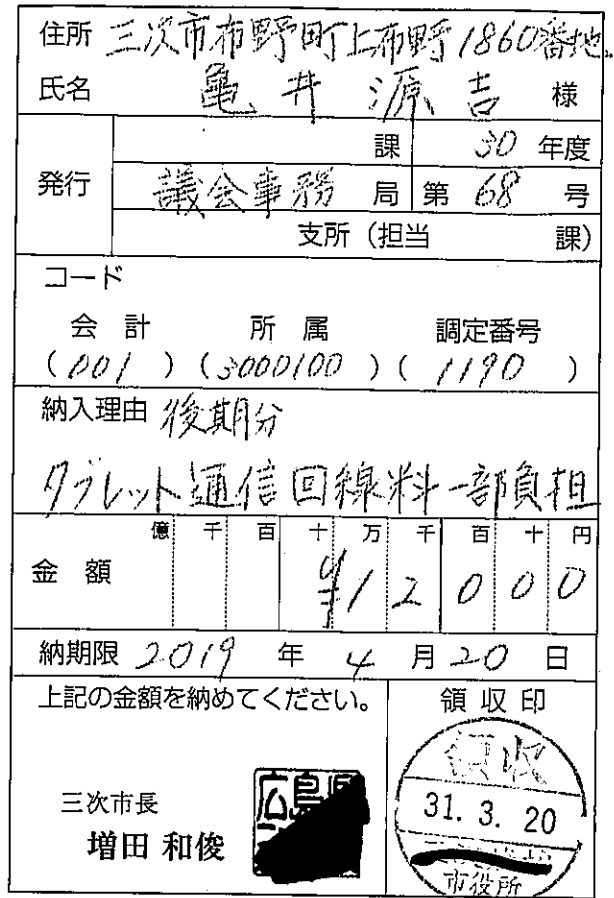 住所 三次市布野町上布野1860番地
氏名 亀井源吉 様
課 30 年度
発行 議会事務 局 第 68 号
支所 (担当 課)
コード
会計 所属 調定番号
(001) (3000100) (1190)
納入理由 後期分
タブレット通信回線料一部負担
億 千 百 十 万 千 百 十 円
金額 ¥12000
納期限 2019 年 4 月 20 日
上記の金額を納めてください。 領収印
領収
三次市長 31.3.20
増田 和俊
市役所
広島県